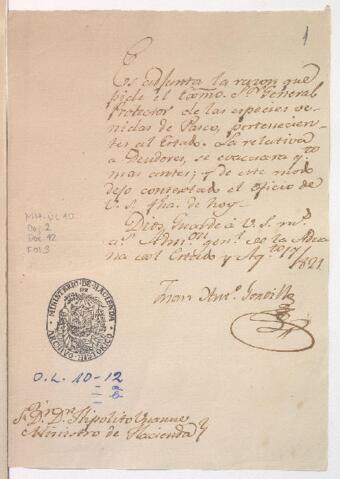 1
Es adjunta la razon que
pide el Exmo. Sr. General
Protector de las especies ve-
nidas de Pasco, pertenecien-
tes al Estado. La relativa
a Deudores, se evacuará qto
mas antes; y de este modo
dejo contextado el oficio de
V. S. fha. de hoy.
Dios Guarde á V. S. ms.
as. Admon. genl. de la Adua
na del Estado y Agto 17/
821.
Fran Anto.
MINISTERIO DE HACIENDA
ARCHIVO HISTORICO
MH-OL 10
Caj. 2
Doc. 12
Fol. 3
O.L. 10-12
Sr. Dn. Dr. Hipolito Unanue
Ministro de Hacienda